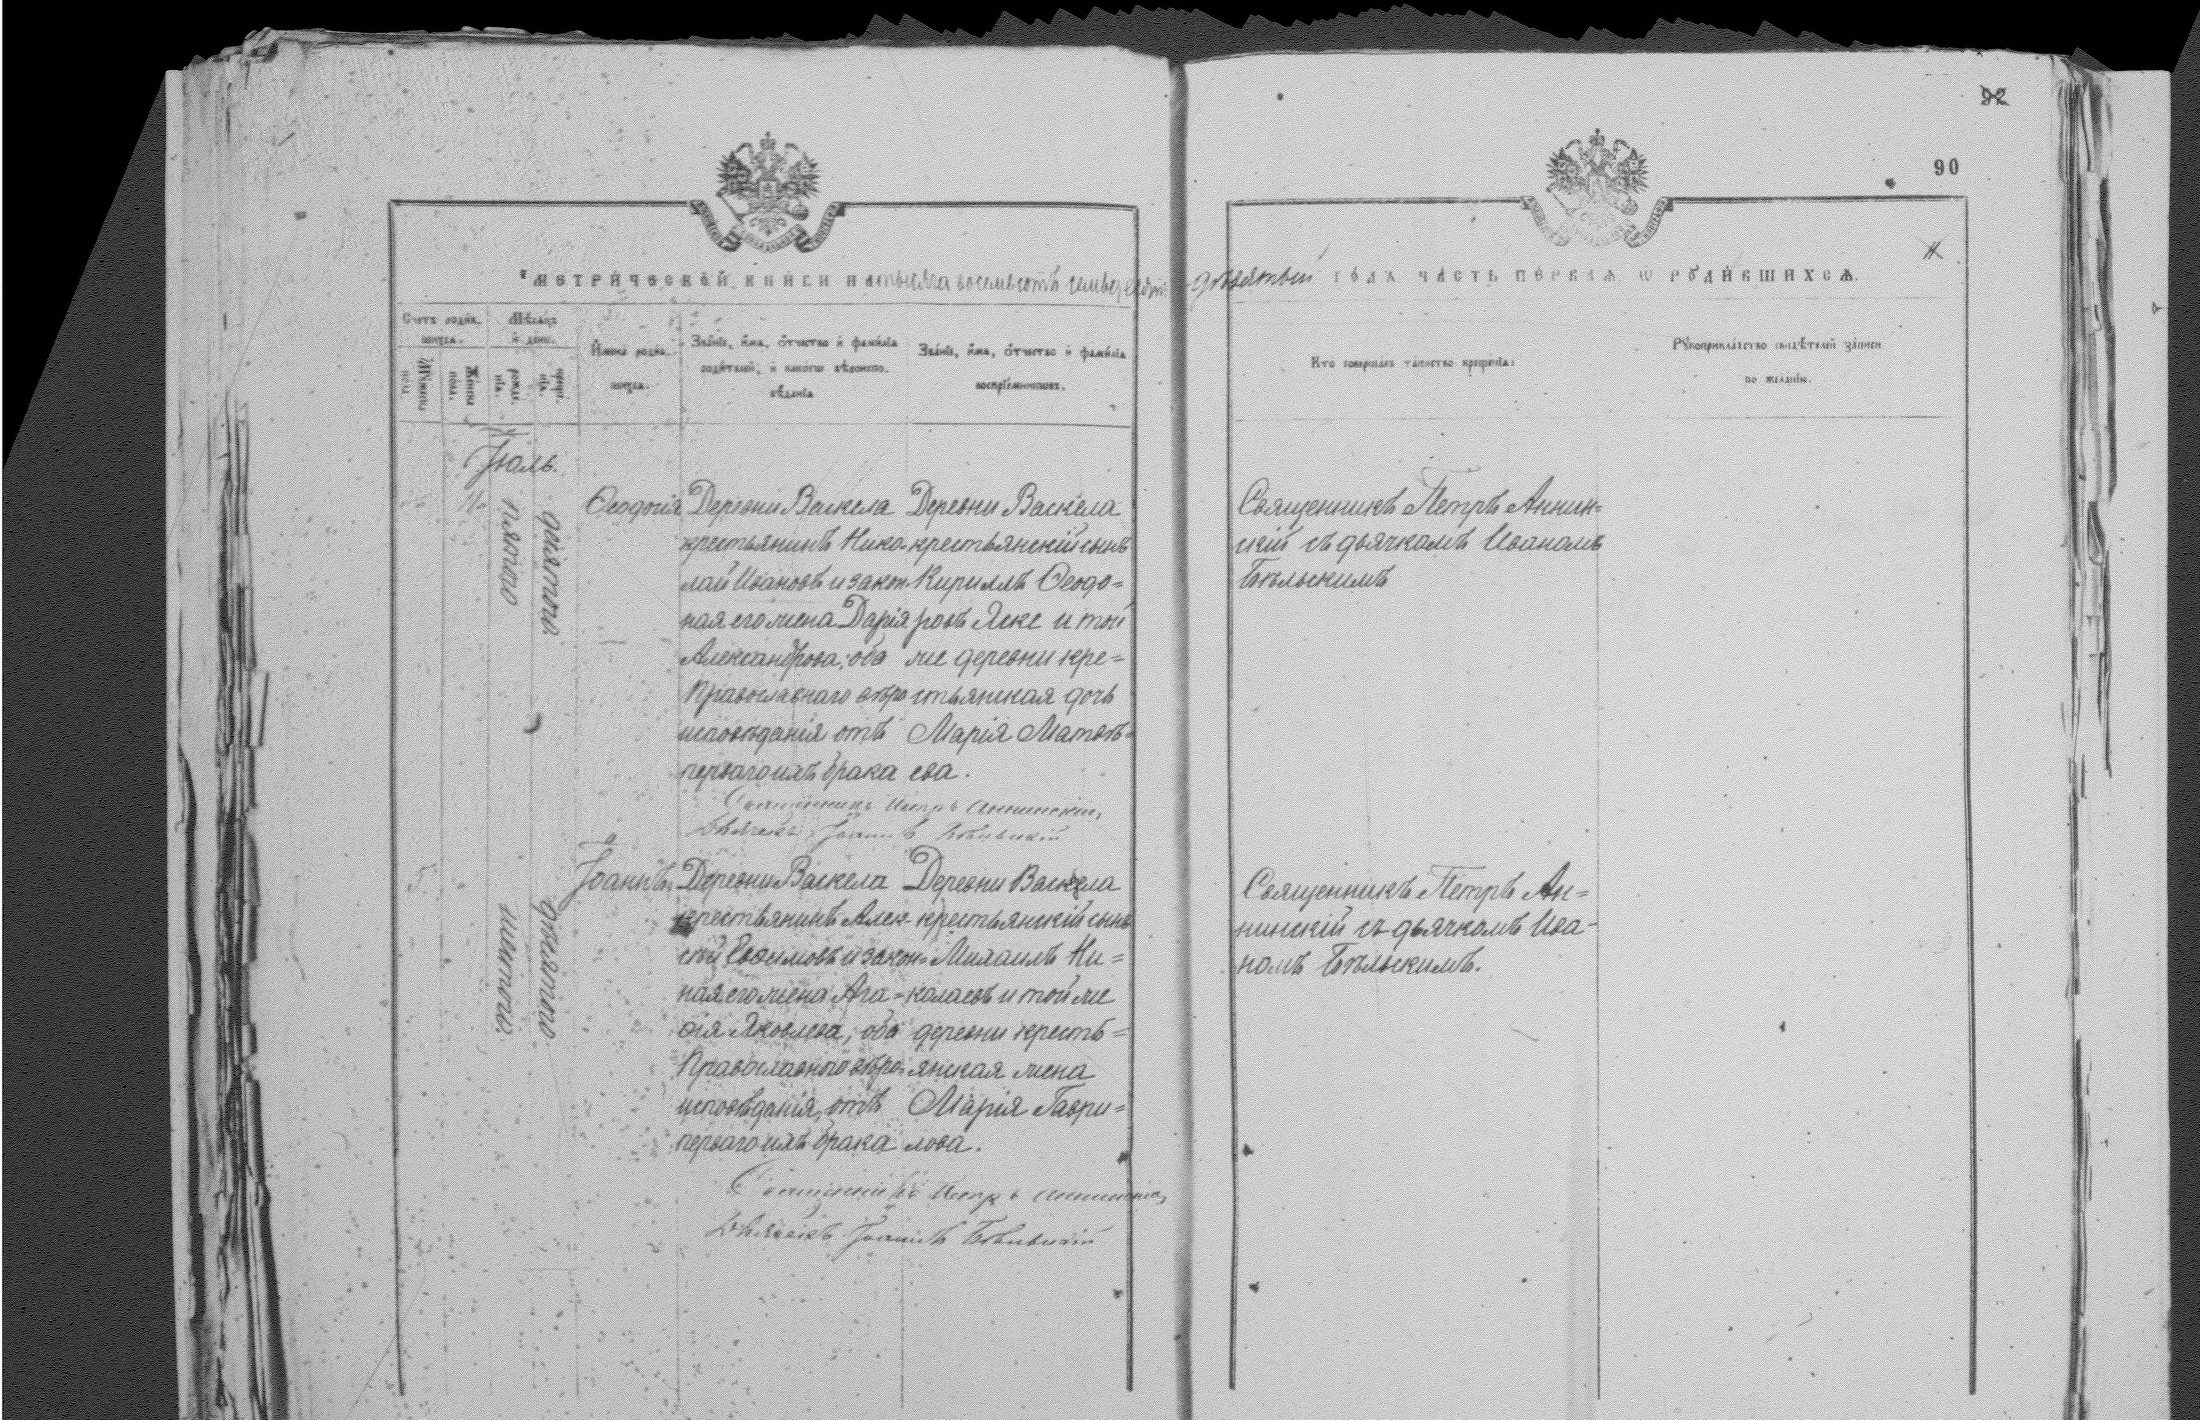 92
90
МЕТРИЧЕСКОЙ КНИГИ НА тысяча восемьсотъ семьдесятъ девятый ГОДЪ ЧАСТЬ ПЕРВАЯ Ѡ РОДИВШИХСЯ.
Счетъ родив-
шихся.
Мѣсяцъ
и день.
Мужеска
пола
Женска
пола.
рожде-
нія.
креще-
нія.
Имена родив-
шихся.
Званіе, имя, отчество и фамилія
родителей, и какого вѣроиспо-
вѣданія
Званіе, имя, отчество и фамилія
воспріемниковъ.
Кто совершалъ таинство крещенія:
Рукоприкладство свидѣтелей записи
по желанію.
Іюль.
пятаго
девятаго
Ѳеодосія
Деревни Васкела
крестьянинъ Нико
лай Ивановъ и закон
ная его жена Дарія
Александрова; оба
Православнаго вѣро
исповѣданія отъ
перваго ихъ брака
Деревни Васкела
крестьянскій сынъ
Кириллъ Ѳеодо=
ровъ Яске и той
же деревни кре=
стьянская дочь
Марія Матвѣ=
ева.
Священникъ Петръ Аннин=
скій съ дьячкомъ Иваномъ
Бѣльскимъ
Священникъ Петръ Аннинскій,
Дьячекъ Іоаннъ Бѣльскій
5.
шестаго
девятаго
Іоаннъ
Деревни Васкела
крестьянинъ Алек
сѣй Евѳимовъ и закон=
ная его жена Ага=
ѳія Яковлева; оба
Православнаго вѣро=
исповѣданія, отъ
перваго ихъ брака
Деревни Васкела
крестьянскій сынъ
Михаилъ Ни=
колаевъ и той же
деревни кресть=
янская жена
Марія Гаври=
лова.
Священникъ Петръ Ан=
нинскій съ дьячкомъ Ива-
номъ Бѣльскимъ.
Священникъ Петръ Аннинскій,
Дьячекъ Іоаннъ Бѣльскій